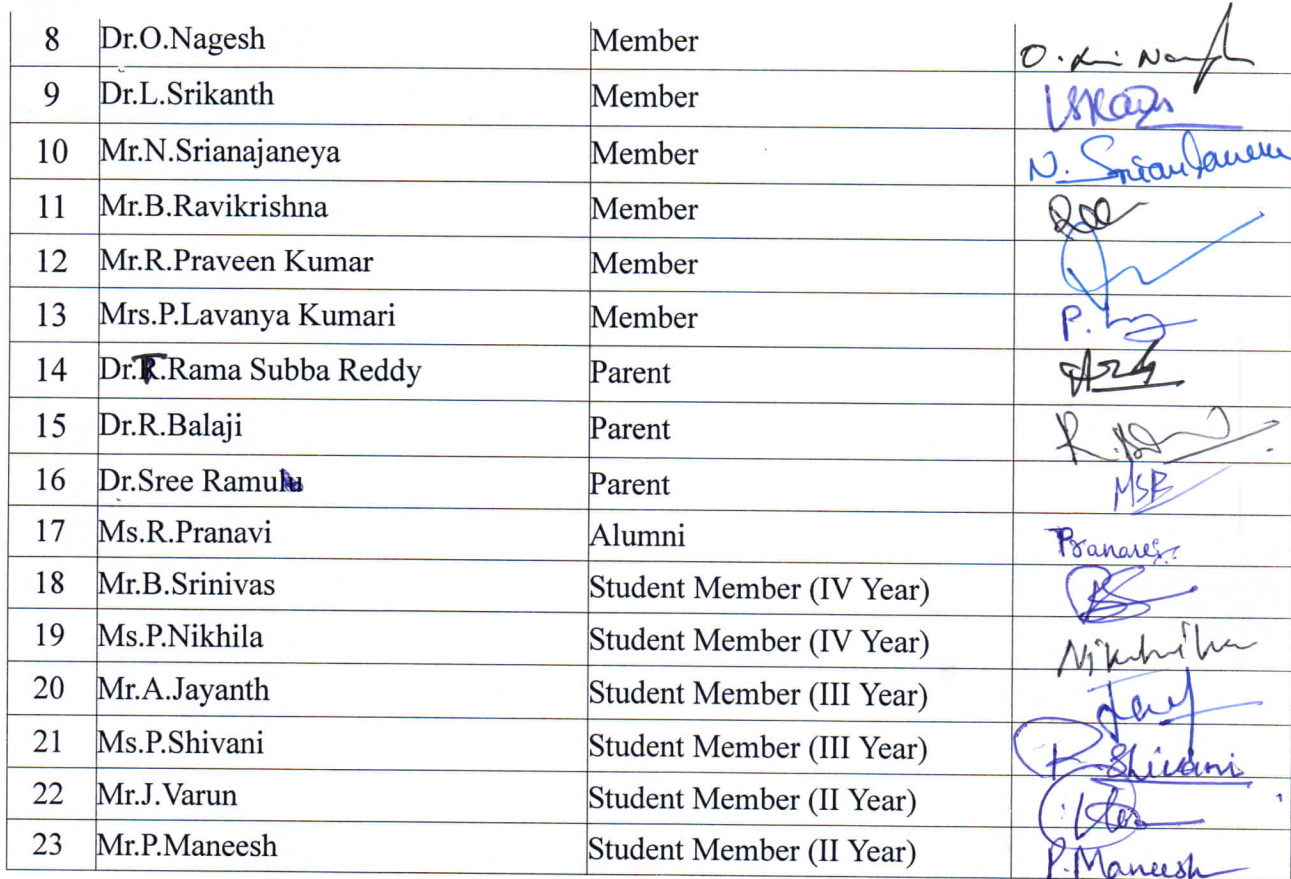 8 Dr.O.Nagesh Member
9 Dr.L.Srikanth Member
10 Mr.N.Srianajaneya Member N.
11 Mr.B.Ravikrishna Member
12 Mr.R.Praveen Kumar Member
13 Mrs.P.Lavanya Kumari Member P.
14 Dr.T.Rama Subba Reddy Parent
15 Dr.R.Balaji Parent
16 Dr.Sree Ramulu Parent
17 Ms.R.Pranavi Alumni
18 Mr.B.Srinivas Student Member (IV Year)
19 Ms.P.Nikhila Student Member (IV Year)
20 Mr.A.Jayanth Student Member (III Year)
21 Ms.P.Shivani Student Member (III Year) P. Shivani
22 Mr.J.Varun Student Member (II Year)
23 Mr.P.Maneesh Student Member (II Year) P.Maneesh